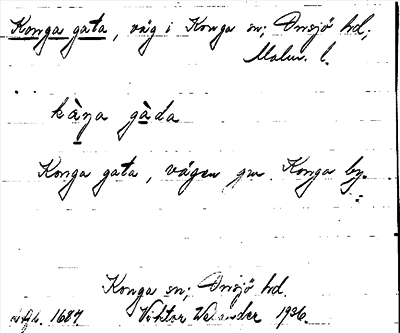 Konga gata, väg i Konga sn; Onsjö hd,
Malm. l.
kàŋa gàda
Konga gata, vägen gm Konga by.
Konga sn; Onsjö hd.
1687 Viktor Welander 1936.